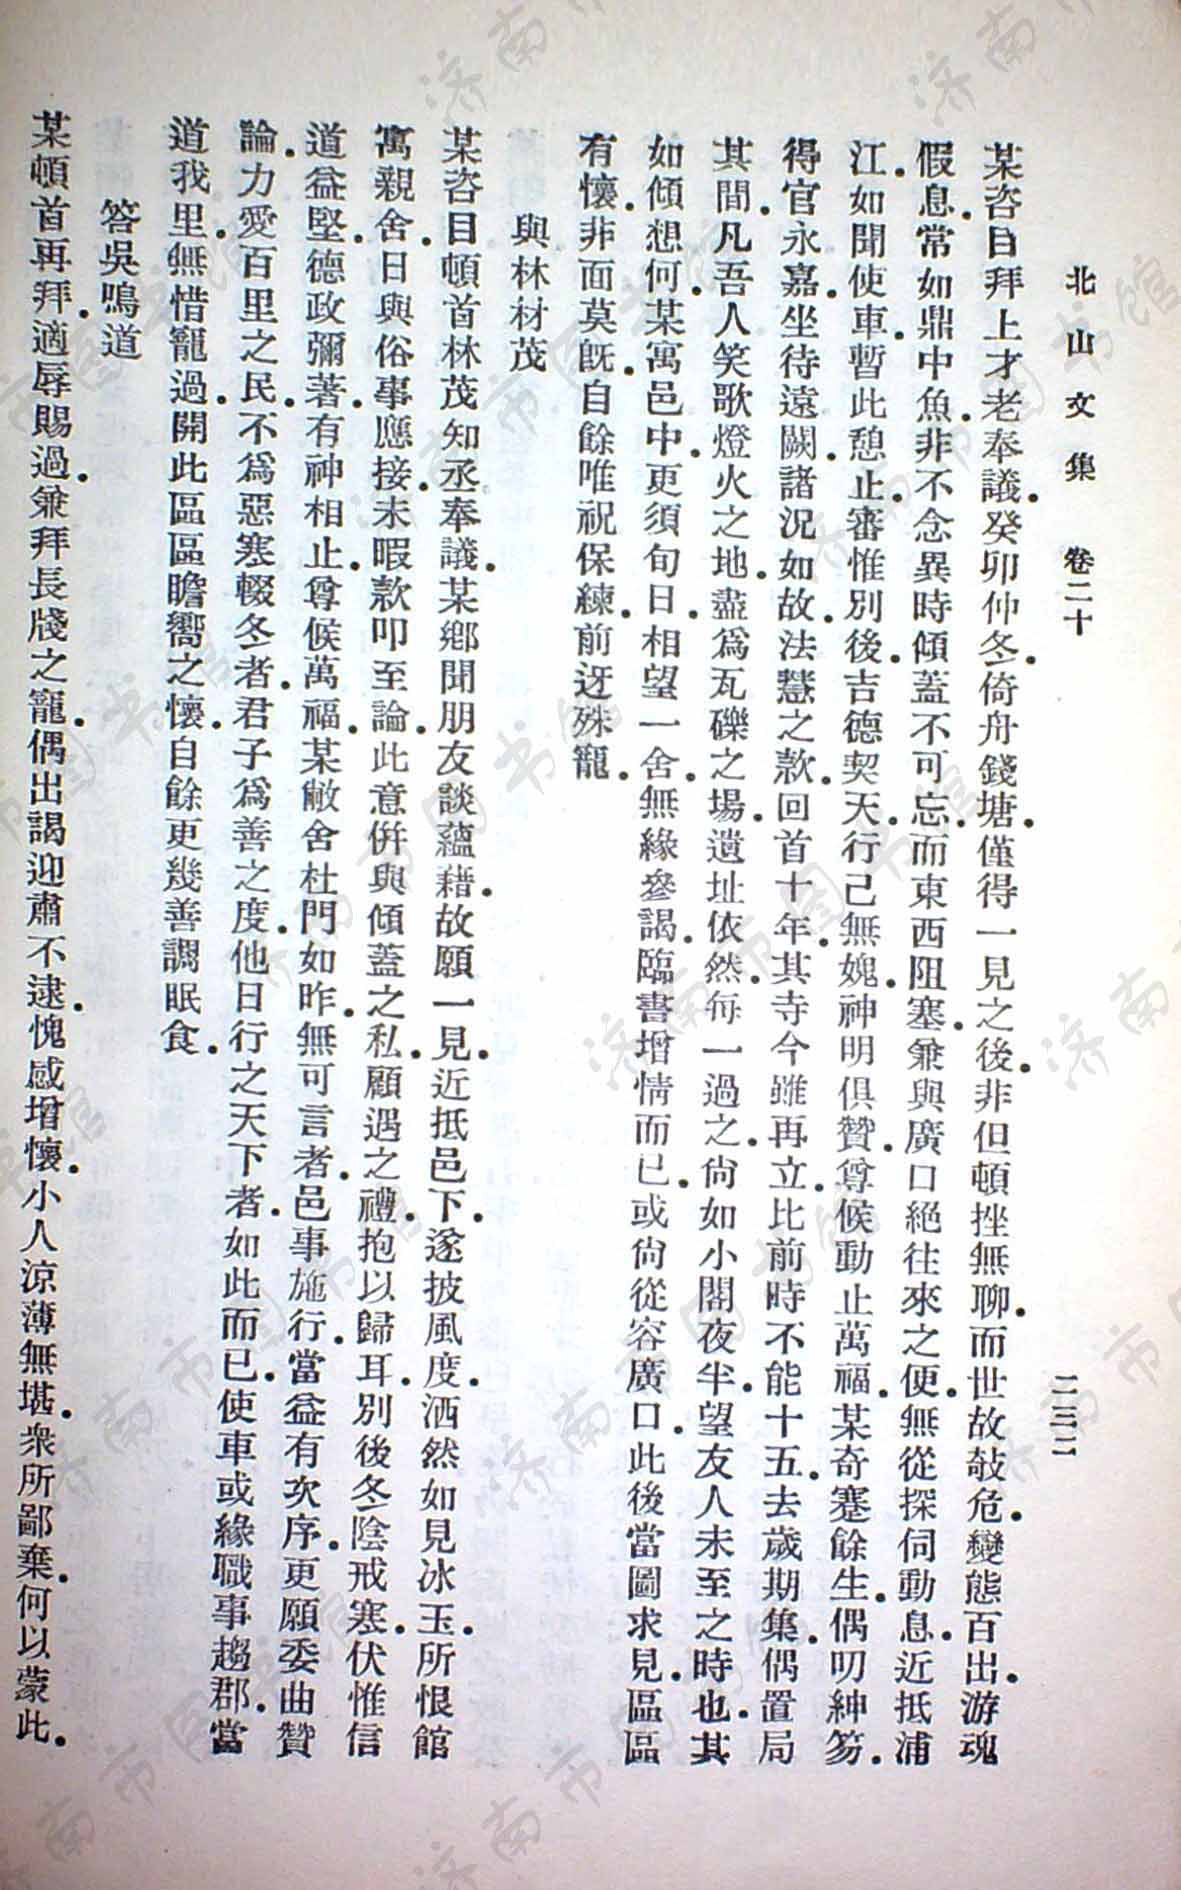 北山文集　卷二十　二三二
某咨目拜上才老奉議．癸卯仲冬．倚舟錢塘．僅得一見之後．非但頓挫無聊．而世故攲危．變態百出．游魂
假息．常如鼎中魚．非不念異時傾蓋不可忘．而東西阻塞．兼與廣口絕往來之便．無從探伺動息．近抵浦
江．如聞使車．暫此憩止．審惟別後．吉德契天．行己無媿．神明俱贊．尊候動止萬福．某奇蹇餘生．偶叨紳笏．
得官永嘉．坐待遠闕．諸況如故．法慧之款．回首十年．其寺今雖再立．比前時不能十五．去歲期集．偶置局
其間．凡吾人笑歌燈火之地．盡爲瓦礫之場．遺址依然．每一過之．尙如小閣夜半．望友人未至之時也．其
如傾想何．某寓邑中．更須旬日．相望一舍．無緣參謁．臨書增情而已．或尙從容廣口．此後當圖求見．區區
有懷．非面莫旣．自餘唯祝保練．前迓殊寵．
與林材茂
某咨目頓首林茂知丞奉議．某鄉聞朋友談蘊藉．故願一見．近抵邑下．遂披風度．洒然如見冰玉．所恨館
寓親舍．日與俗事應接．未暇款叩至論．此意倂與傾蓋之私．顧遇之禮．抱以歸耳．別後冬陰戒寒．伏惟信
道益堅．德政彌著．有神相止．尊候萬福．某敝舍杜門如昨．無可言者．邑事施行．當益有次序．更願委曲贊
論．力愛百里之民．不爲惡寒輟冬者．君子爲善之度．他日行之天下者．如此而已．使車或緣職事趨郡．當
道我里．無惜寵過．開此區區瞻嚮之懷．自餘更幾善調眠食．
答吳鳴道
某頓首再拜．適辱賜過．兼拜長牋之寵．偶出謁迎肅不逮．愧感增懷．小人涼薄無堪．衆所鄙棄．何以蒙此．